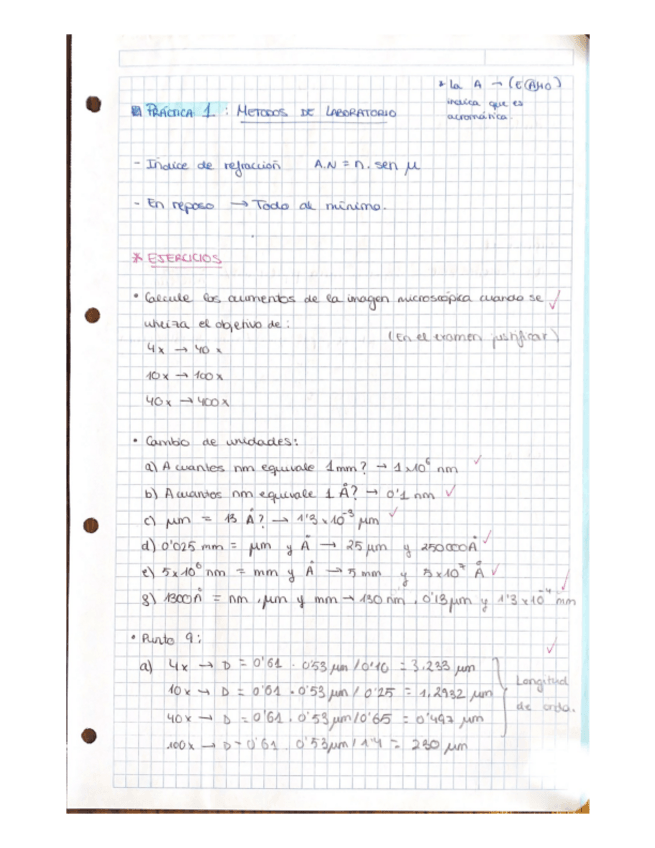 * la A → (E(A)HO)
indica que es
acromática.
PRÁCTICA 1 : METODOS DE LABORATORIO
- Indice de refracción A.N = n. sen μ
- En reposo → Todo al mínimo.
* EJERCICIOS
• Calcule los aumentos de la imagen microscópica cuando se ✓
utiliza el objetivo de :
(En el examen justificar)
4x → 40 x
10x → 100x
40x → 400x
• Cambio de unidades:
a) A cuantos nm equivale 1mm? → 1x10⁶ nm ✓
b) A cuantos nm equivale 1 Å? → 0'1 nm ✓
c) μm = 13 Å? → 1'3 x 10⁻³ μm ✓
d) 0'025 mm = μm y Å → 25 μm y 250000Å ✓
e) 5x10⁶ nm = mm y Å → 5 mm y 5x10⁷ Å ✓
g) 1300Å = nm, μm y mm → 130 nm, 0'13 μm y 1'3 x10⁻⁴ mm ✓
• Punto 9: ✓
a) 4x → D = 0'61 . 0'53 μm / 0'10 = 3,233 μm
10x → D = 0'61 . 0'53 μm / 0'25 = 1,2932 μm
40x → D = 0'61 . 0'53 μm / 0'65 = 0'497 μm
100x → D = 0'61 . 0'53 μm / 1'4 = 230 μm
Longitud
de onda.